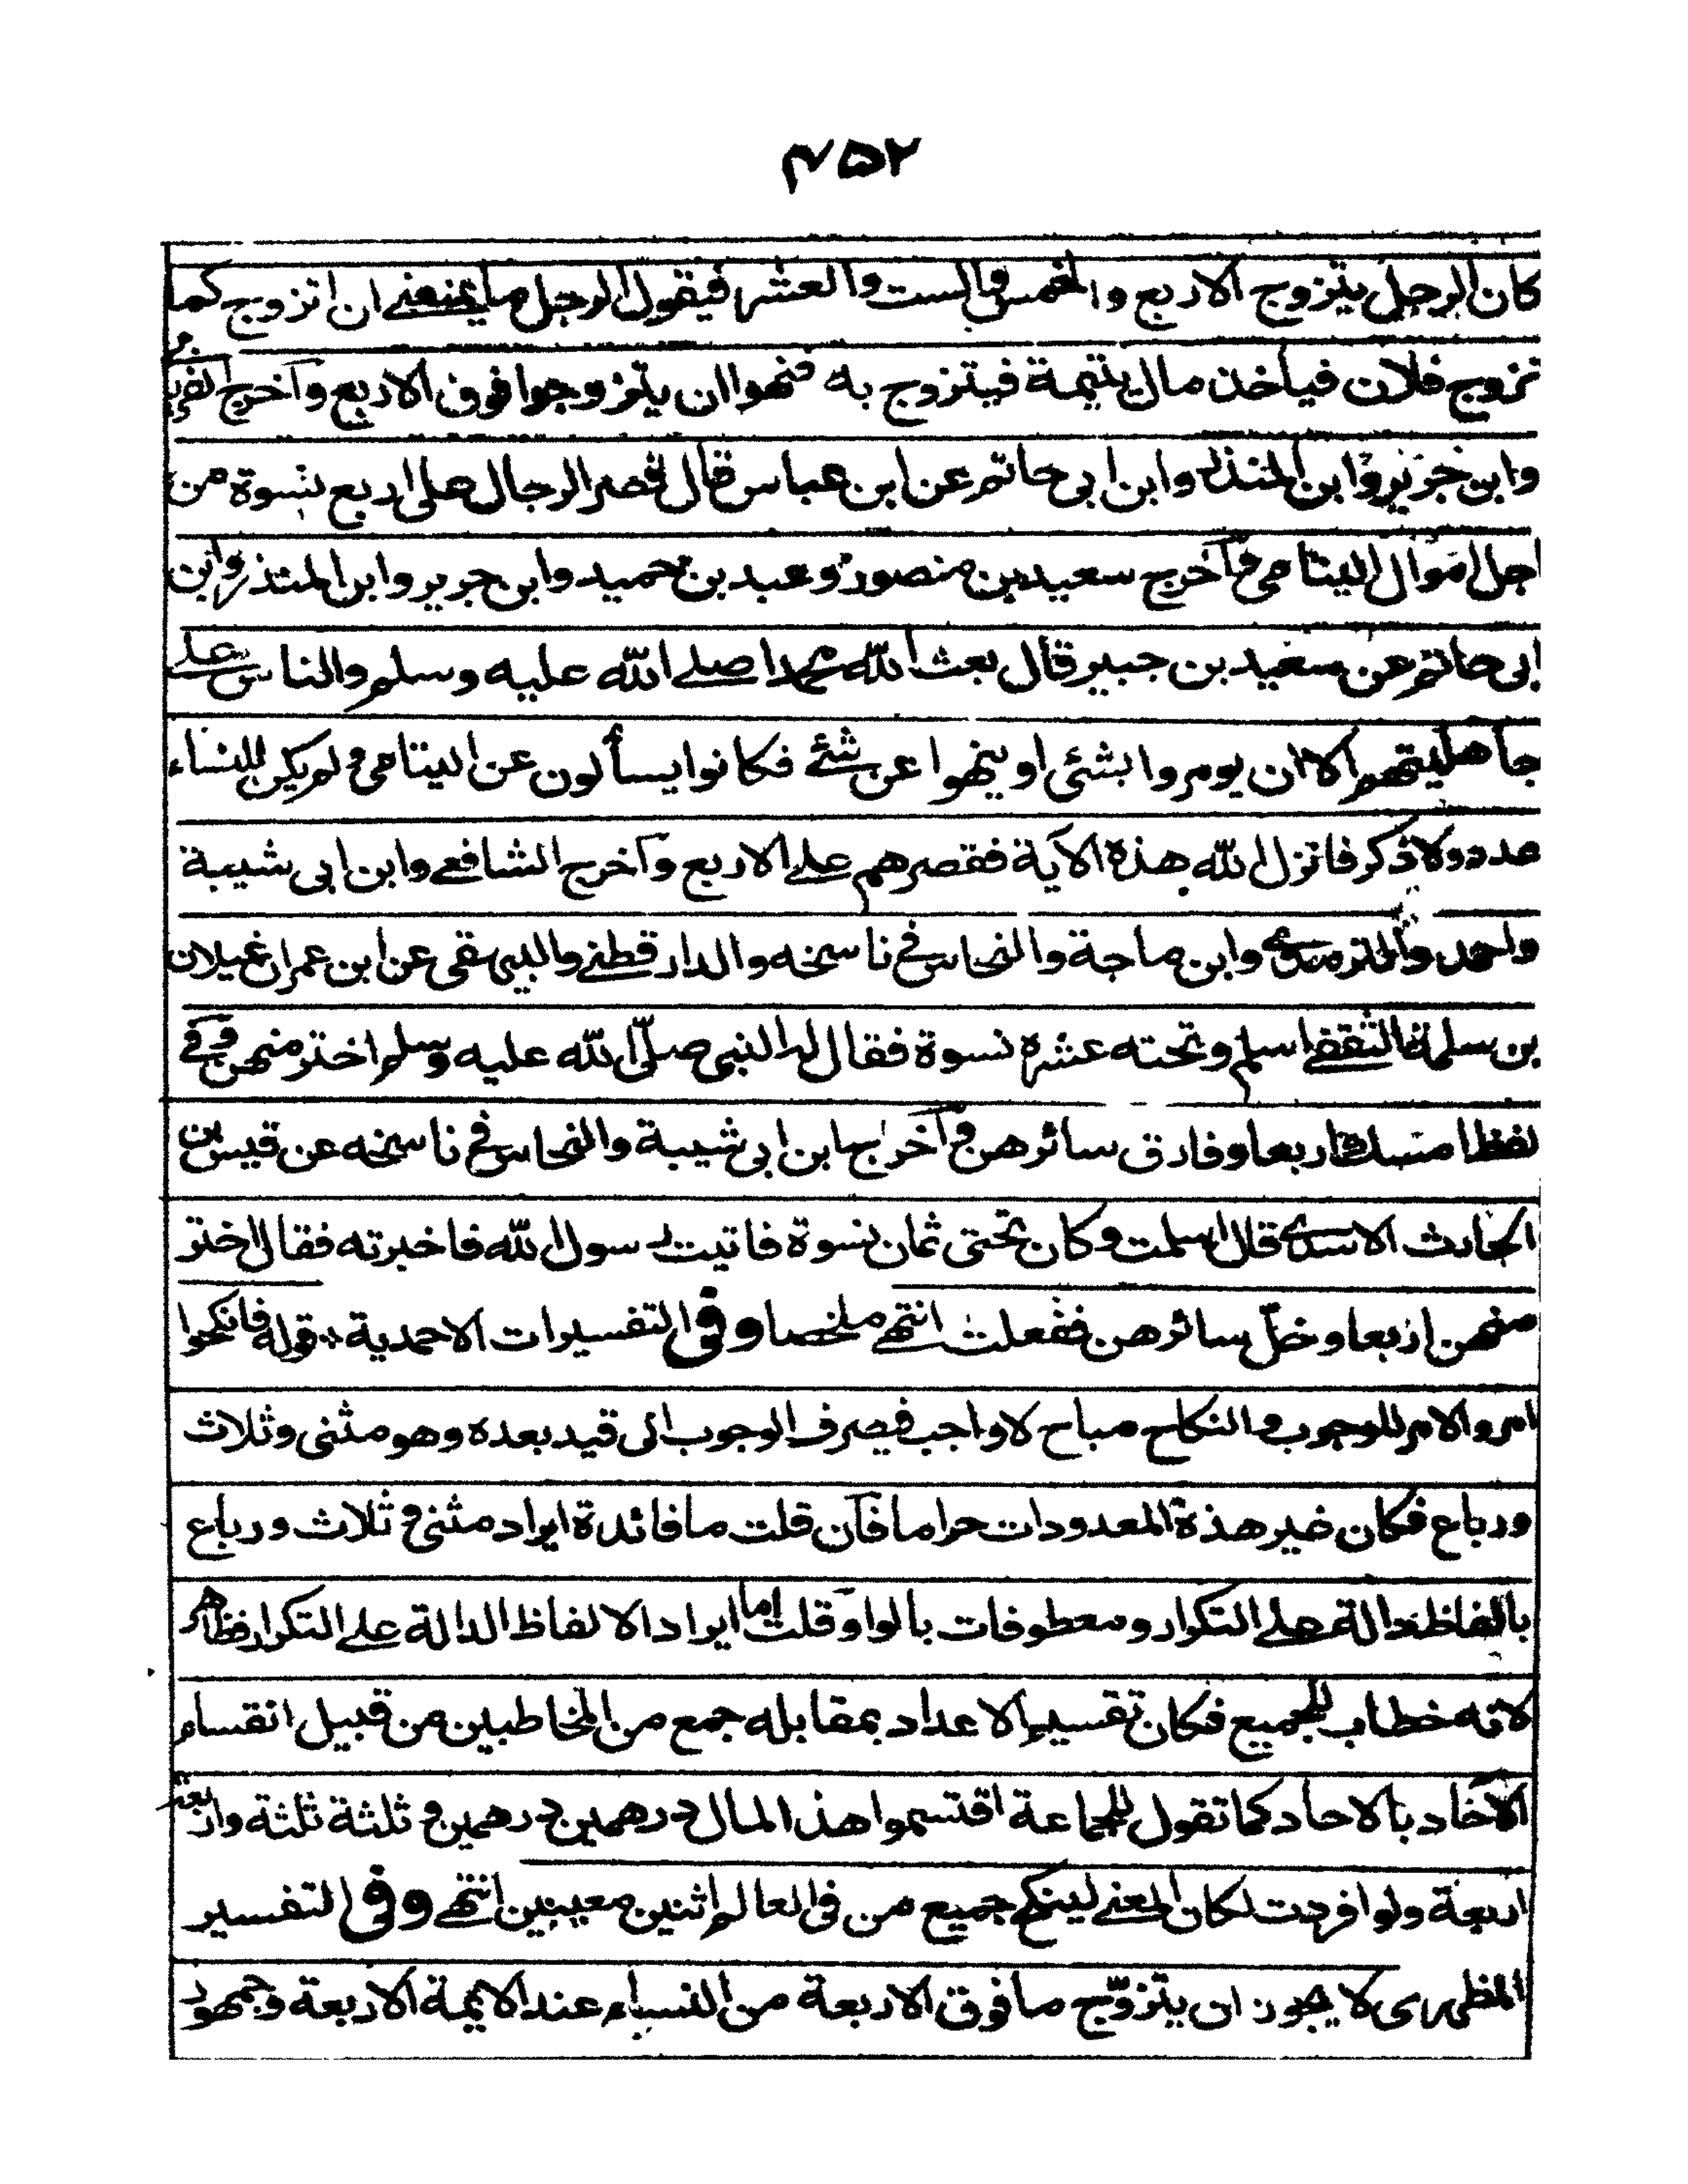 ۴۵۲
كان الرجل يتزوج الاربع والخمس والست والعشر فيقول الرجل ما يمنعنے ان اتزوج كما
تزوج فلان فياخذ مال يتيمة فيتزوج به فنهوا ان يتزوجوا فوق الاربع وآخرج الفريابى
وابن جرير وابن المنذر وابن ابى حاتم عن ابن عباس قال قصر الرجال على اربع نسوة من
اجل اموال اليتامى وآخرج سعيد بن منصور وعبد بن حميد وابن جرير وابن المنذر وابن
ابى حاتم عن سعيد بن جبير قال بعث الله محمدا صلے الله عليه وسلم والناس علے
جاهليتهم الا ان يومروا بشئى او ينهوا عن شئے فكانوا يسألون عن اليتامى ولم يكن للنساء
عدد ولا ذكر فانزل الله هذه الآية فقصرهم علے الاربع وآخرج الشافعے وابن ابى شيبة
واحمد والترمذے وابن ماجة والنحاس فے ناسخه والدارقطنے والبيهقى عن ابن عمر ان غيلان
بن سلمة الثقفے اسلم وتحته عشرة نسوة فقال له النبى صلّى الله عليه وسلم اختر منهن وفے
لفظ امسك اربعا وفارق سائرهن وآخرج ابن ابى شيبة والنحاس فے ناسخه عن قيس بن
الحارث الاسدے قال اسلمت وكان تحتى ثمان نسوة فاتيت رسول الله فاخبرته فقال اختر
منهن اربعا وخلّ سائرهن ففعلت انتهے ملخصا وفى التفسيرات الاحمدية ؞ قوله فانكحوا
امر والامر للوجوب والنكاح مباح لا واجب فيصرف الوجوب الى قيد بعده وهو مثنى وثلاث
ورباع فكان غير هذه المعدودات حراما فآن قلت ما فائدة ايراد مثنى وثلاث ورباع
بالفاظ دالة علے التكرار ومعطوفات بالواو قلت اما ايراد الالفاظ الدالة علے التكرار فظاهر
لانه خطاب للجميع فكان تقسيم الاعداد بمقابله جمع من المخاطبين من قبيل انقسام
الآحاد بالاحاد كما تقول للجماعة اقتسموا هذا المال درهمين درهمين وثلثة ثلثة واربعة
اربعة ولو افردت لكان المعنے لينكح جميع من فى العالم اثنين معينين انتهے وفى التفسير
المظهرى لا يجوز ان يتزوّج ما فوق الاربعة من النساء عند الايمة الاربعة وجمهور